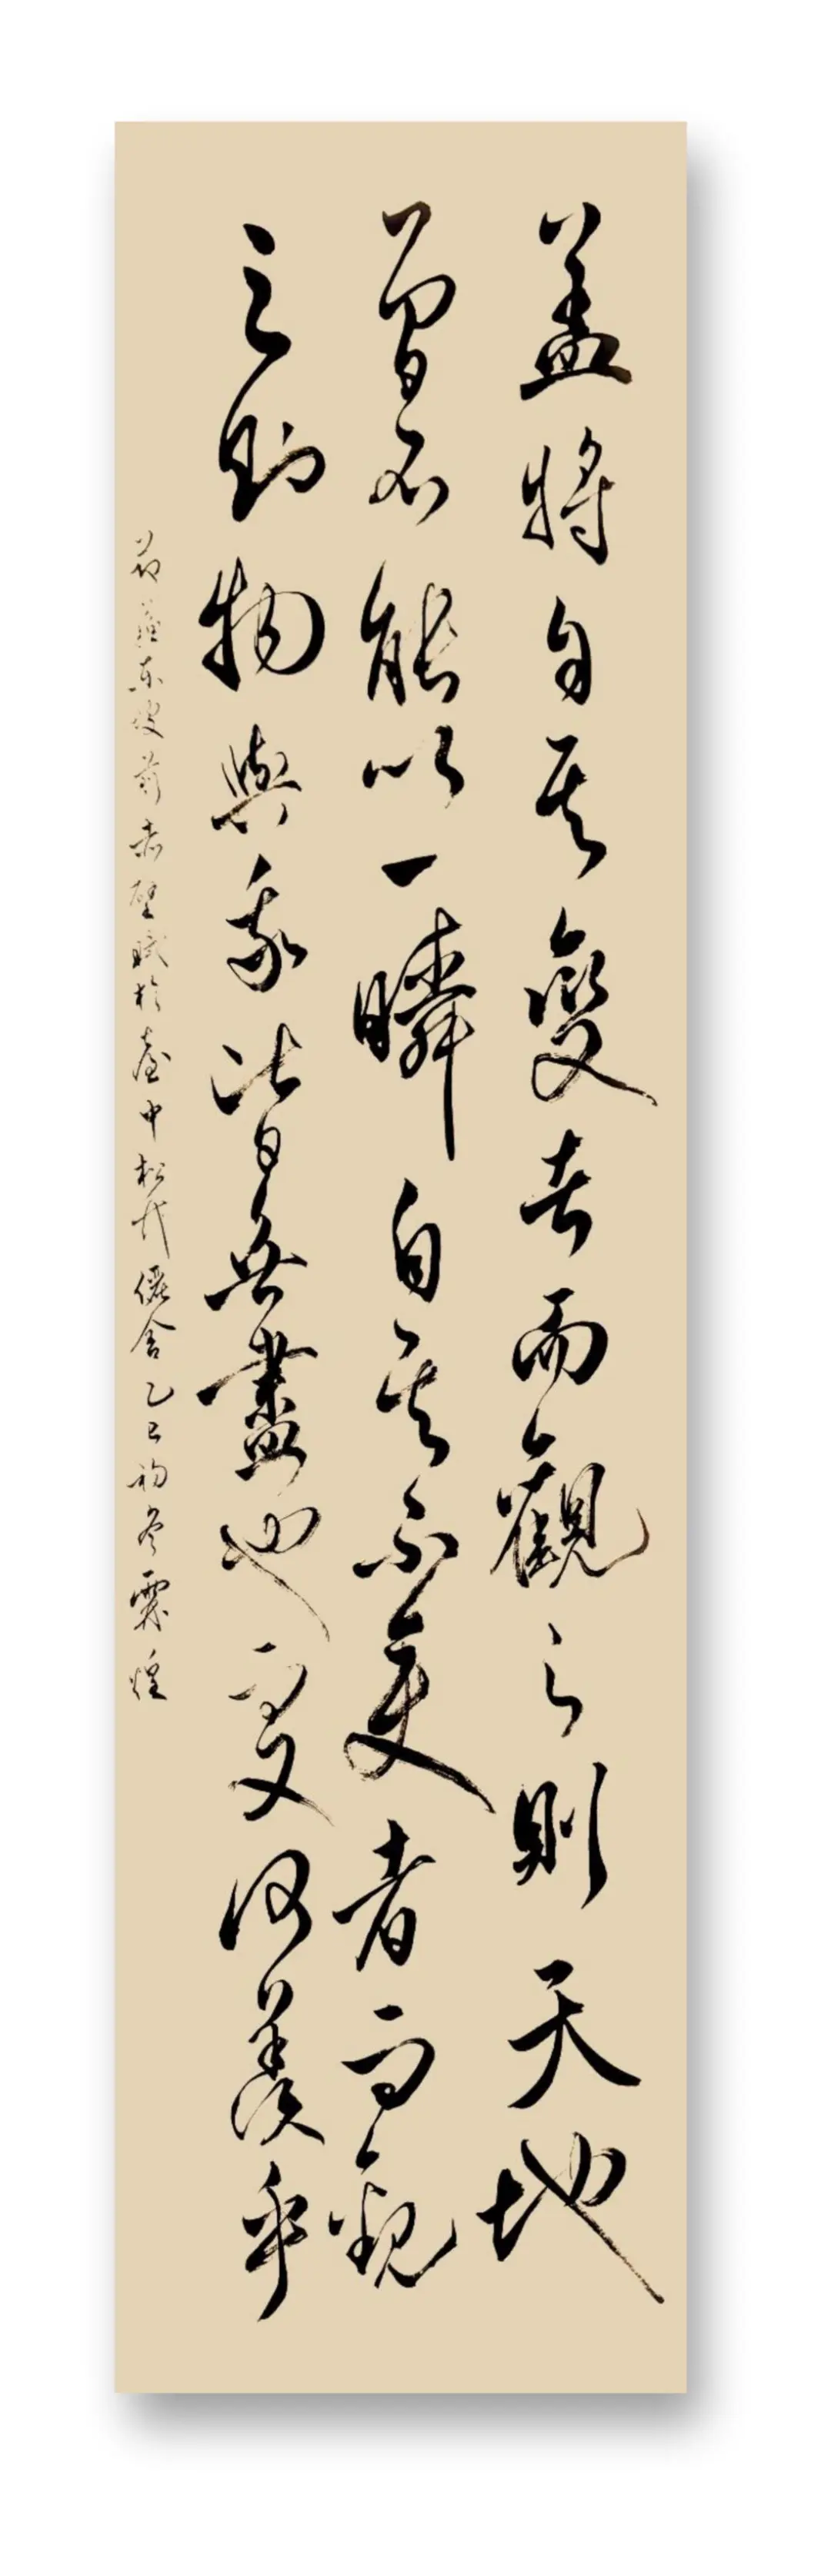 蓋將自其變者而觀之則天地
曾不能以一瞬自其不變者而觀
之則物與我皆無盡也而又何羨乎
節蘇東坡前赤壁賦於臺中松竹僑舍乙巳初冬霖煌